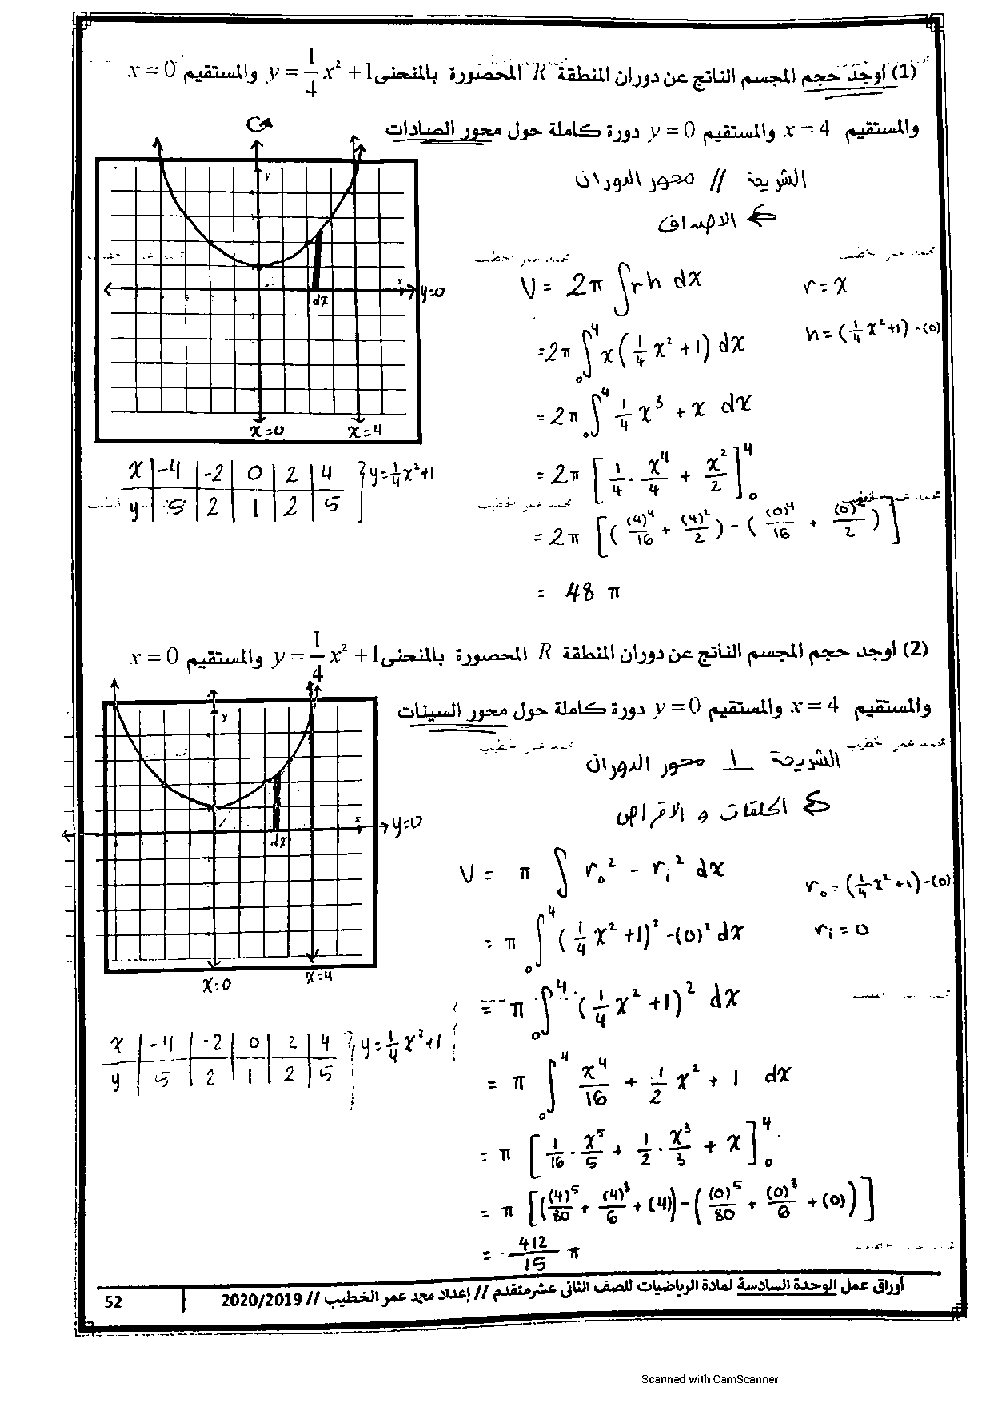 (1) أوجد حجم المجسم الناتج عن دوران المنطقة R المحصورة بالمنحنى y = 1/4 x² + 1 والمستقيم x = 0
والمستقيم x = 4 والمستقيم y = 0 دورة كاملة حول محور الصادات
الشريحة // محور الدوران
⇐ الاصداف
y
y=0
dx
x=0 x=4
x | -4 | -2 | 0 | 2 | 4 } y=1/4 x²+1
y | 5 | 2 | 1 | 2 | 5
V = 2π ∫ rh dx
r = x
= 2π ∫₀⁴ x(1/4 x² + 1) dx
h = (1/4 x²+1) - (0)
= 2π ∫₀⁴ 1/4 x³ + x dx
= 2π [1/4 · x⁴/4 + x²/2]₀⁴
= 2π [((4)⁴/16 + (4)²/2) - ((0)⁴/16 + (0)²/2)]
= 48 π
(2) أوجد حجم المجسم الناتج عن دوران المنطقة R المحصورة بالمنحنى y = 1/4 x² + 1 والمستقيم x = 0
والمستقيم x = 4 والمستقيم y = 0 دورة كاملة حول محور السينات
الشريحة ⊥ محور الدوران
⇐ الحلقات و الاقراص
y
y=0
dx
x=0 x=4
x | -4 | -2 | 0 | 2 | 4 } y=1/4 x²+1
y | 5 | 2 | 1 | 2 | 5
V = π ∫ r₀² - rᵢ² dx
r₀ = (1/4 x² + 1) - (0)
= π ∫₀⁴ (1/4 x² + 1)² - (0)² dx
rᵢ = 0
= π ∫₀⁴ (1/4 x² + 1)² dx
= π ∫₀⁴ x⁴/16 + 1/2 x² + 1 dx
= π [1/16 · x⁵/5 + 1/2 · x³/3 + x]₀⁴
= π [((4)⁵/80 + (4)³/6 + (4)) - ((0)⁵/80 + (0)³/6 + (0))]
= 412/15 π
أوراق عمل الوحدة السادسة لمادة الرياضيات للصف الثاني عشر متقدم // إعداد محمد عمر الخطيب // 2020/2019
52
Scanned with CamScanner